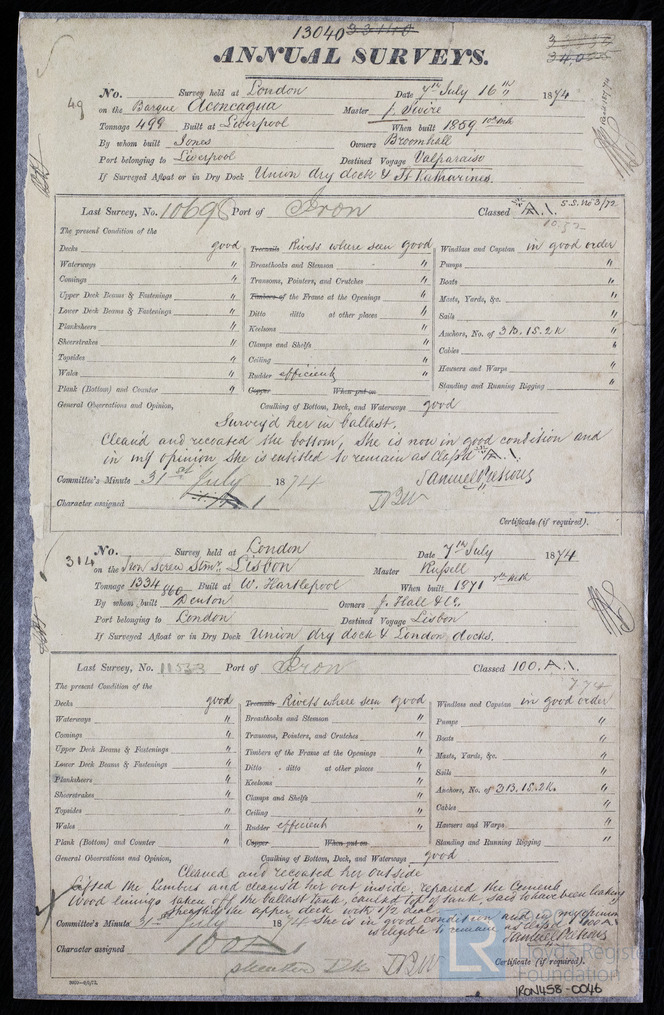 13040 33140
ANNUAL SURVEYS.
No. Survey held at London Date 7th July 16th 1874
49 on the Barque Aconcagua Master J. Swire
Tonnage 499 Built at Liverpool When built 1859 10 mth
By whom built Jones Owners Broomhall
Port belonging to Liverpool Destined Voyage Valparaiso
If Surveyed Afloat or in Dry Dock Union dry dock & St. Katharines
Last Survey, No. 10698 Port of Iron Classed A.1. S.S. No 3/72
The present Condition of the
Decks good Treenails Rivets where seen good Windlass and Capstan in good order
Waterways " Breasthooks and Stemson " Pumps "
Comings " Transoms, Pointers, and Crutches " Boats "
Upper Deck Beams & Fastenings " Timbers of the Frame at the Openings " Masts, Yards, &c. "
Lower Deck Beams & Fastenings " Ditto ditto at other places " Sails "
Planksheers " Keelsons " Anchors, No. of 3 B. 1 S. 2 K "
Sheerstrakes " Clamps and Shelfs " Cables "
Topsides " Ceiling " Hawsers and Warps "
Wales " Rudder efficient Standing and Running Rigging "
Plank (Bottom) and Counter " Copper When put on
General Observations and Opinion, Caulking of Bottom, Deck, and Waterways good
Survey'd her in ballast.
Clean'd and recoated the bottom, she is now in good condition and
in my opinion she is entitled to remain as Class'd A.1.
Committee's Minute 31st July 1874
Character assigned
Certificate (if required).
No. Survey held at London Date 7th July 1874
314 on the Iron Screw Stmr. Lisbon Master Russell
Tonnage 1334 860 Built at W. Hartlepool When built 1871 7th mth
By whom built Denton Owners J. Hall & Co.
Port belonging to London Destined Voyage Lisbon
If Surveyed Afloat or in Dry Dock Union dry dock & London docks.
Last Survey, No. 11533 Port of Iron Classed 100.A.1.
7 74
The present Condition of the
Decks good Treenails Rivets where seen good Windlass and Capstan in good order
Waterways " Breasthooks and Stemson " Pumps "
Comings " Transoms, Pointers, and Crutches " Boats "
Upper Deck Beams & Fastenings " Timbers of the Frame at the Openings " Masts, Yards, &c. "
Lower Deck Beams & Fastenings " Ditto ditto at other places " Sails "
Planksheers " Keelsons " Anchors, No. of 3 B. 1 S. 2 K. "
Sheerstrakes " Clamps and Shelfs " Cables "
Topsides " Ceiling " Hawsers and Warps "
Wales " Rudder efficient Standing and Running Rigging "
Plank (Bottom) and Counter " Copper When put on
General Observations and Opinion, Caulking of Bottom, Deck, and Waterways good
Cleaned and recoated her outside
Lifted the limbers and cleans'd her out inside, repaired the Cement
Wood linings taken off the ballast tank, caulk'd top of tank, said to have been leaking
sheathed the upper deck with 1½ deal
She is in good condition and in my opinion
is eligible to remain as Class'd 100 A1
Committee's Minute 31st July 1874
Character assigned 100 A1
Certificate (if required).
LR
Foundation
IRON458-0046